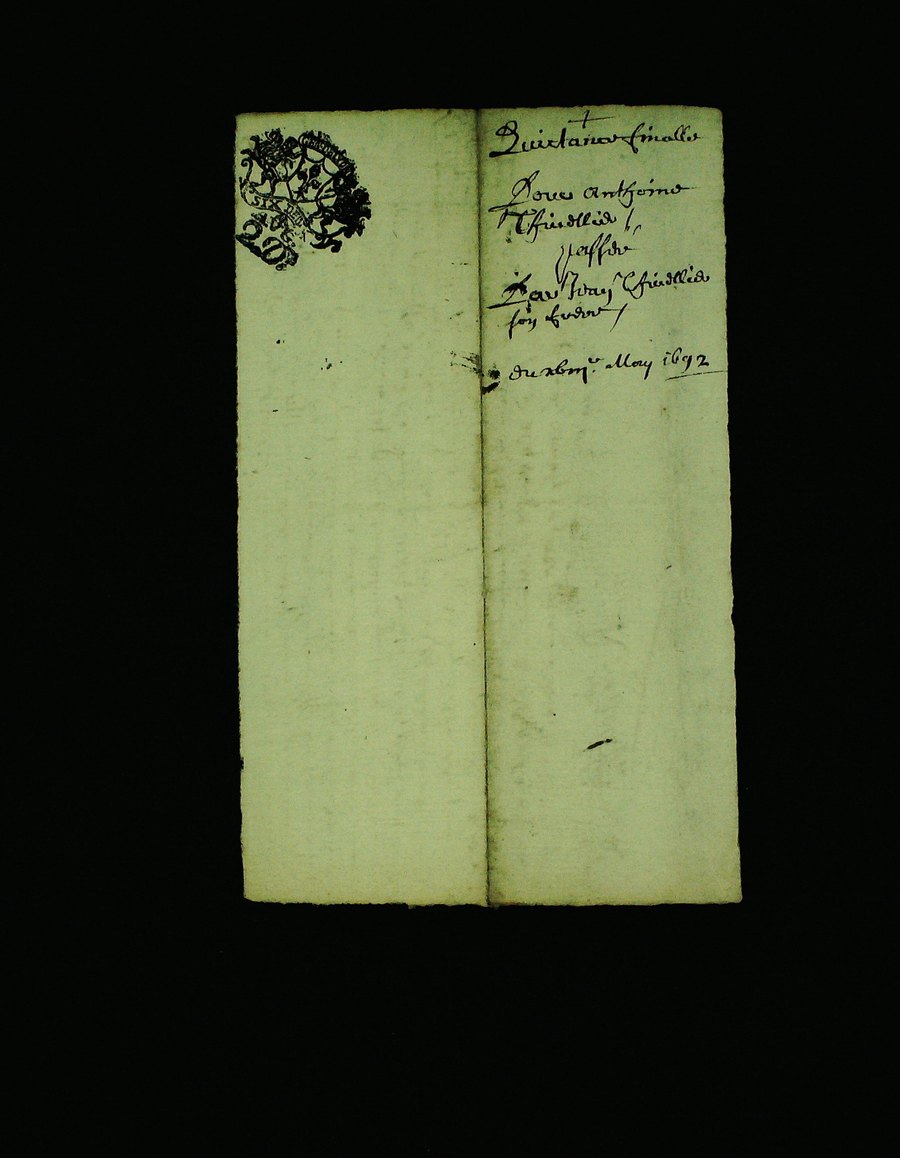 SIX DEN
Quictance finalle
Pour Anthoine
Thiuellier
passee
Par Jean Thiuellier
son frere
du xbiij.e May 1692